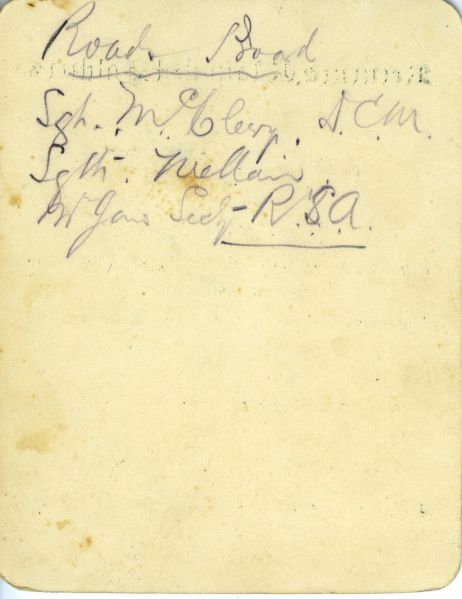 Roads Board
Sgt. McClery. D.C.M.
Sgt. Mellain
Mr Secty R.S.A.